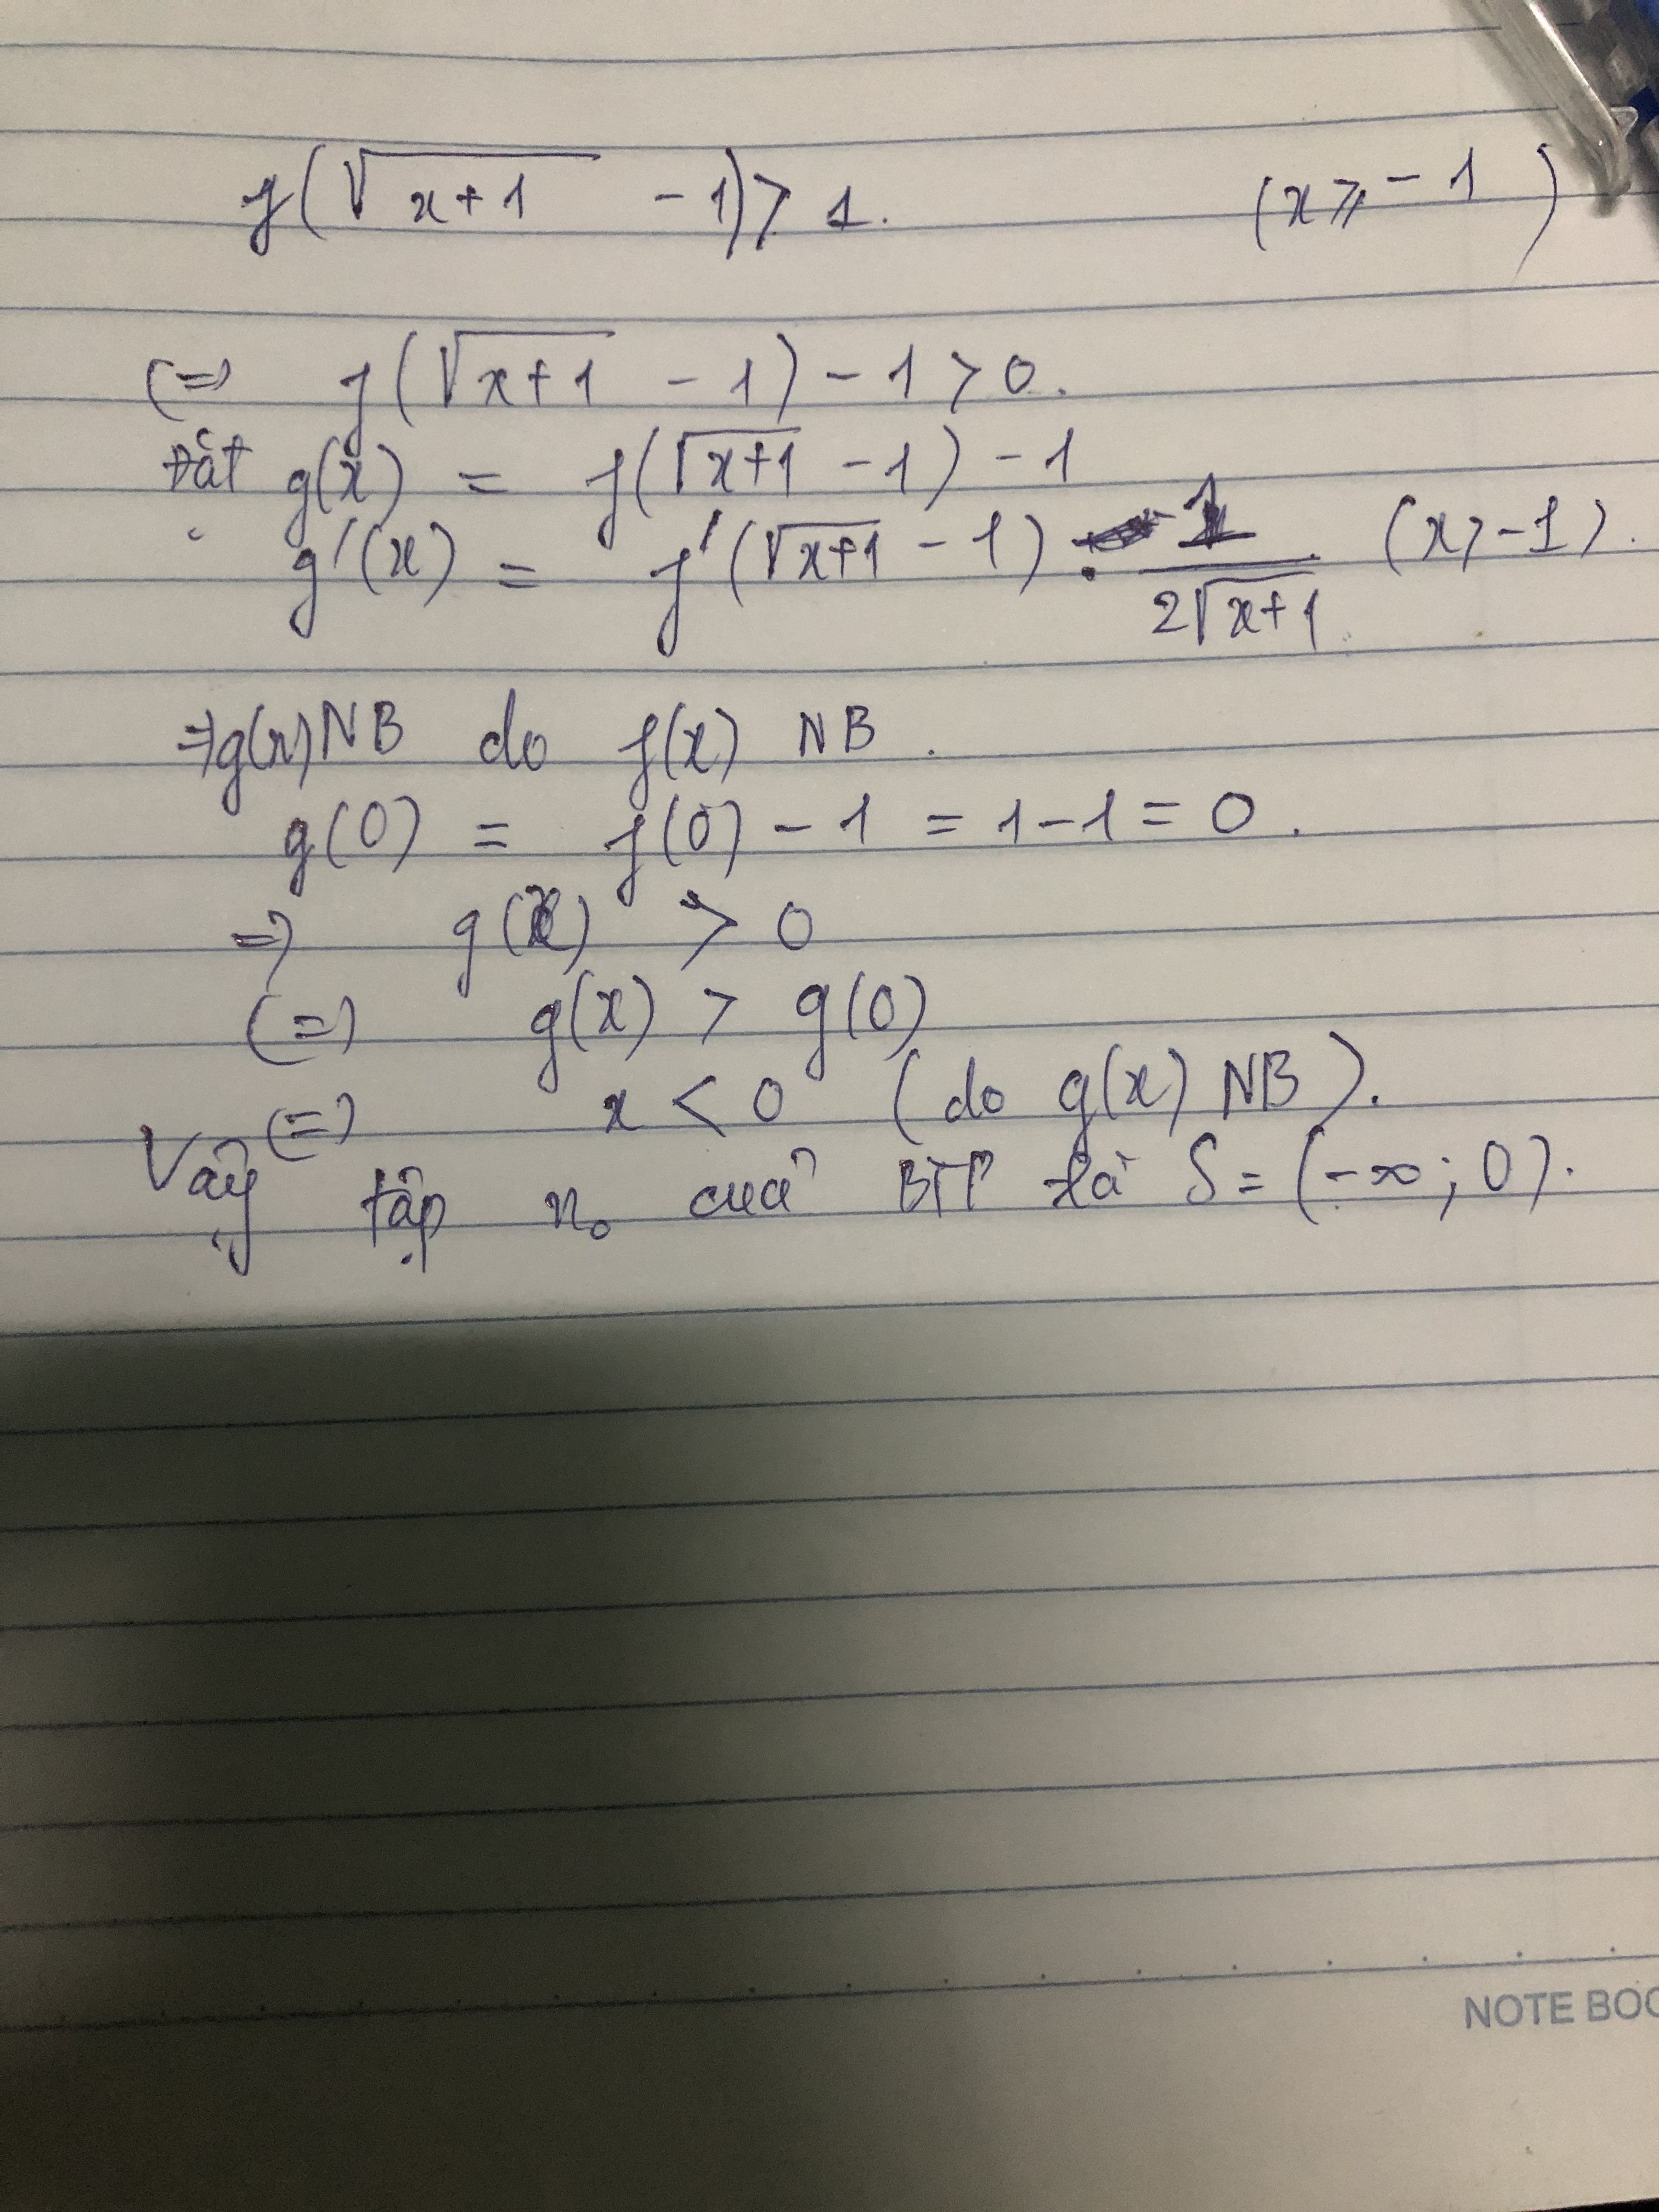 f(√(x+1) - 1) > 1. (x ⩾ -1)
(=) f(√(x+1) - 1) - 1 > 0.
Đặt g(x) = f(√(x+1) - 1) - 1
g'(x) = f'(√(x+1) - 1) . 1/(2√(x+1)) (x > -1).
=) g(x) NB do f(x) NB.
g(0) = f(0) - 1 = 1 - 1 = 0.
=) g(x) > 0
(=) g(x) > g(0)
(=) x < 0 (do g(x) NB).
Vậy tập no của BPT là S = (-∞; 0).
NOTE BOO